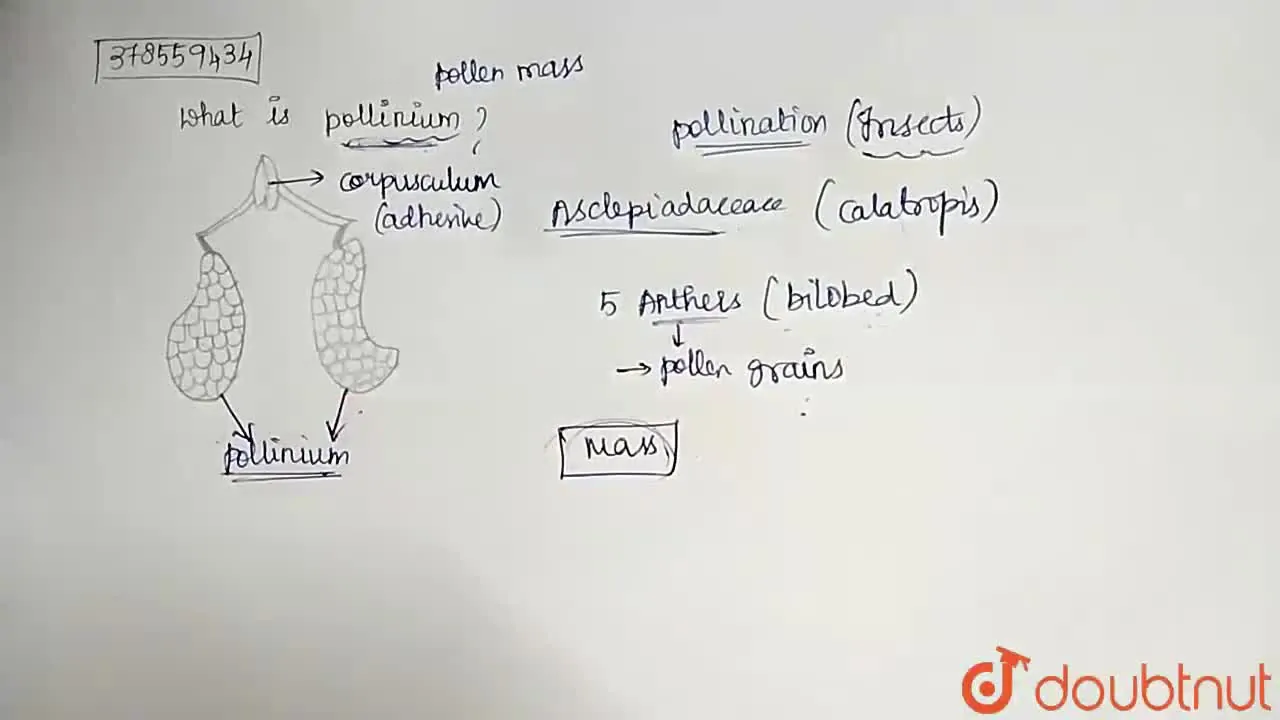 378559434
pollen mass
What is pollinium?
pollination (Insects)
corpusculum
(adhesive)
Asclepiadaceace (calatropis)
5 Anthers (bilobed)
→ pollen grains
mass
pollinium
doubtnut